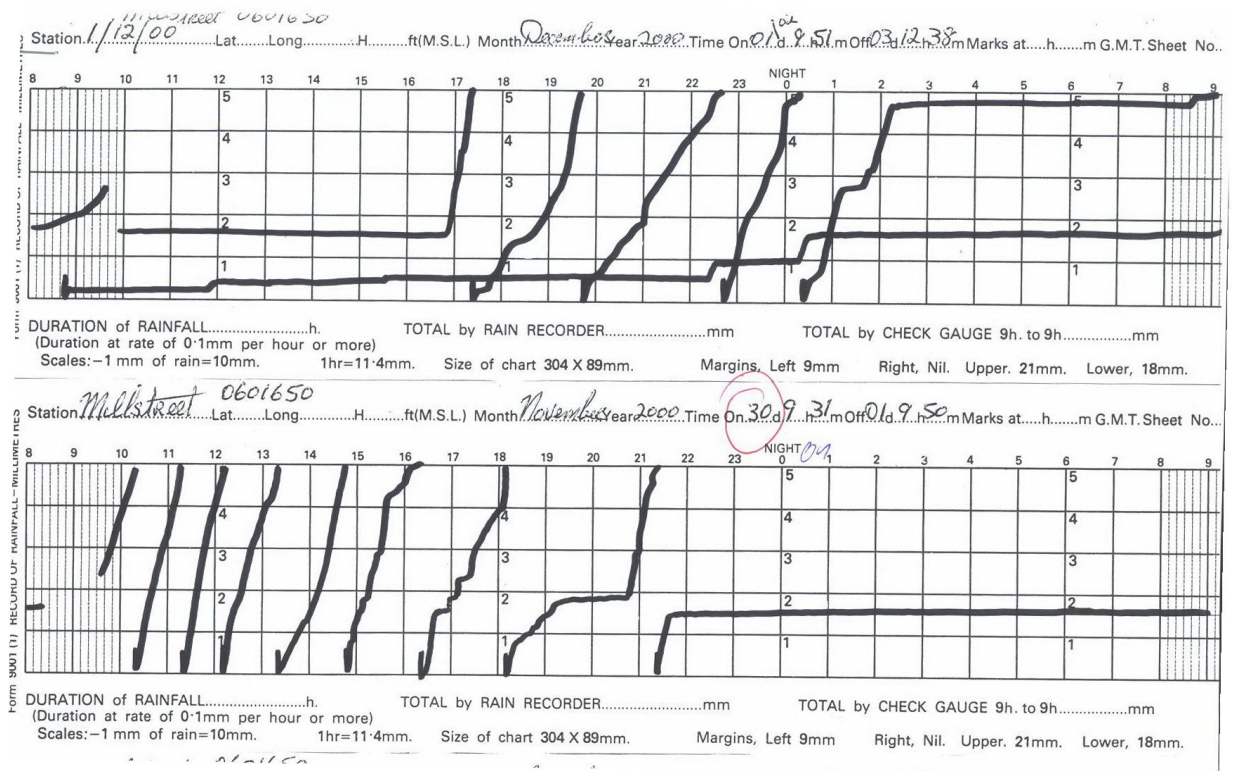 Millstreet 0601650
Station 1/12/00 Lat......Long......H......ft(M.S.L.) Month December Year 2000 Time On 01 d 9 h 51 m Off 03 d 12 h 38 m Marks at.....h......m G.M.T. Sheet No..
jan
NIGHT
8 9 10 11 12 13 14 15 16 17 18 19 20 21 22 23 0 1 2 3 4 5 6 7 8 9
5 5 5 5
4 4 4 4
3 3 3 3
2 2 2 2
1 1 1 1
DURATION of RAINFALL......................h. TOTAL by RAIN RECORDER......................mm TOTAL by CHECK GAUGE 9h. to 9h...............mm
(Duration at rate of 0·1mm per hour or more)
Scales:–1 mm of rain=10mm. 1hr=11·4mm. Size of chart 304 X 89mm. Margins, Left 9mm Right, Nil. Upper. 21mm. Lower, 18mm.
Millstreet 0601650
Station Lat......Long......H......ft(M.S.L.) Month November Year 2000 Time On 30 d 9 h 31 m Off 01 d 9 h 50 m Marks at.....h......m G.M.T. Sheet No...
NIGHT
8 9 10 11 12 13 14 15 16 17 18 19 20 21 22 23 0 1 2 3 4 5 6 7 8 9
5 5
4 4 4 4
3 3 3 3
2 2 2 2
1 1 1 1
Form 9001 (11) RECORD OF RAINFALL–MILLIMETRES
DURATION of RAINFALL......................h. TOTAL by RAIN RECORDER......................mm TOTAL by CHECK GAUGE 9h. to 9h...............mm
(Duration at rate of 0·1mm per hour or more)
Scales:–1 mm of rain=10mm. 1hr=11·4mm. Size of chart 304 X 89mm. Margins, Left 9mm Right, Nil. Upper. 21mm. Lower, 18mm.